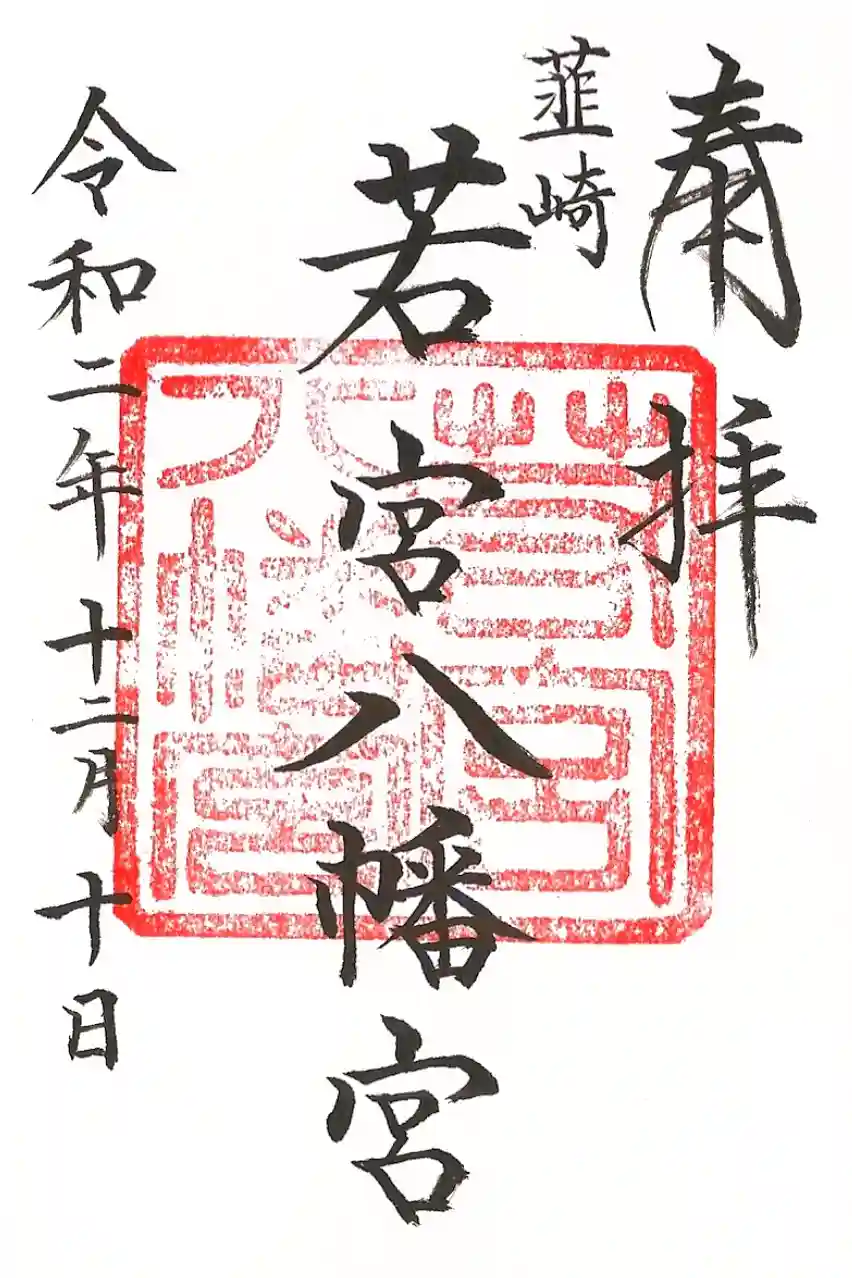 奉拝
韮崎
若宮八幡宮
令和二年十二月十日